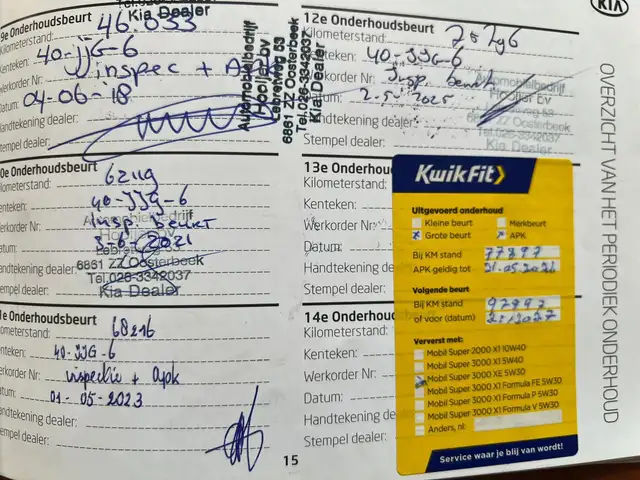 Kia Dealer
9e Onderhoudsbeurt 46 033
Kilometerstand:
Kenteken: 40-JJG-6
Werkorder Nr: inspec + A
Datum: 04-06-'18
Handtekening dealer:
Stempel dealer:
Automobielbedrijf
Hooijer bv
Lebretweg 53
6861 ZZ Oosterbeek
Tel. 026-3342037
Kia Dealer
0e Onderhoudsbeurt
Kilometerstand: 62119
Kenteken: 40-JJG-6
Werkorder Nr: Insp. Beurt
Datum: 3-6-2021
Handtekening dealer:
Stempel dealer:
6861 ZZ Oosterbeek
Tel. 026-3342037
Kia Dealer
1e Onderhoudsbeurt
Kilometerstand: 68216
Kenteken: 40-JJG-6
Werkorder Nr: inspectie + apk
Datum: 01-05-2023
Handtekening dealer:
Stempel dealer:
15
12e Onderhoudsbeurt
Kilometerstand:
Kenteken: 40-JJG-6
Werkorder Nr: Insp. beurt
Datum: 2-5-2025
Handtekening dealer:
Stempel dealer:
Automobielbedrijf
Hooijer bv
6861 ZZ Oosterbeek
Tel. 026-3342037
Kia Dealer
13e Onderhoudsbeurt
Kilometerstand:
Kenteken:
Werkorder Nr:
Datum:
Handtekening dealer:
Stempel dealer:
14e Onderhoudsbeurt
Kilometerstand:
Kenteken:
Werkorder Nr:
Datum:
Handtekening dealer:
Stempel dealer:
KwikFit
Uitgevoerd onderhoud
Kleine beurt Merkbeurt
Grote beurt APK
Bij KM stand 77897
APK geldig tot 21.05.2026
Volgende beurt
Bij KM stand 97897
of voor (datum)
Ververst met:
Mobil Super 2000 X1 10W40
Mobil Super 3000 X1 5W40
Mobil Super 3000 XE 5W30
Mobil Super 3000 X1 Formula FE 5W30
Mobil Super 3000 X1 Formula P 5W30
Mobil Super 3000 X1 Formula V 5W30
Anders, nl:
Service waar je blij van wordt!
KIA
OVERZICHT VAN HET PERIODIEK ONDERHOUD